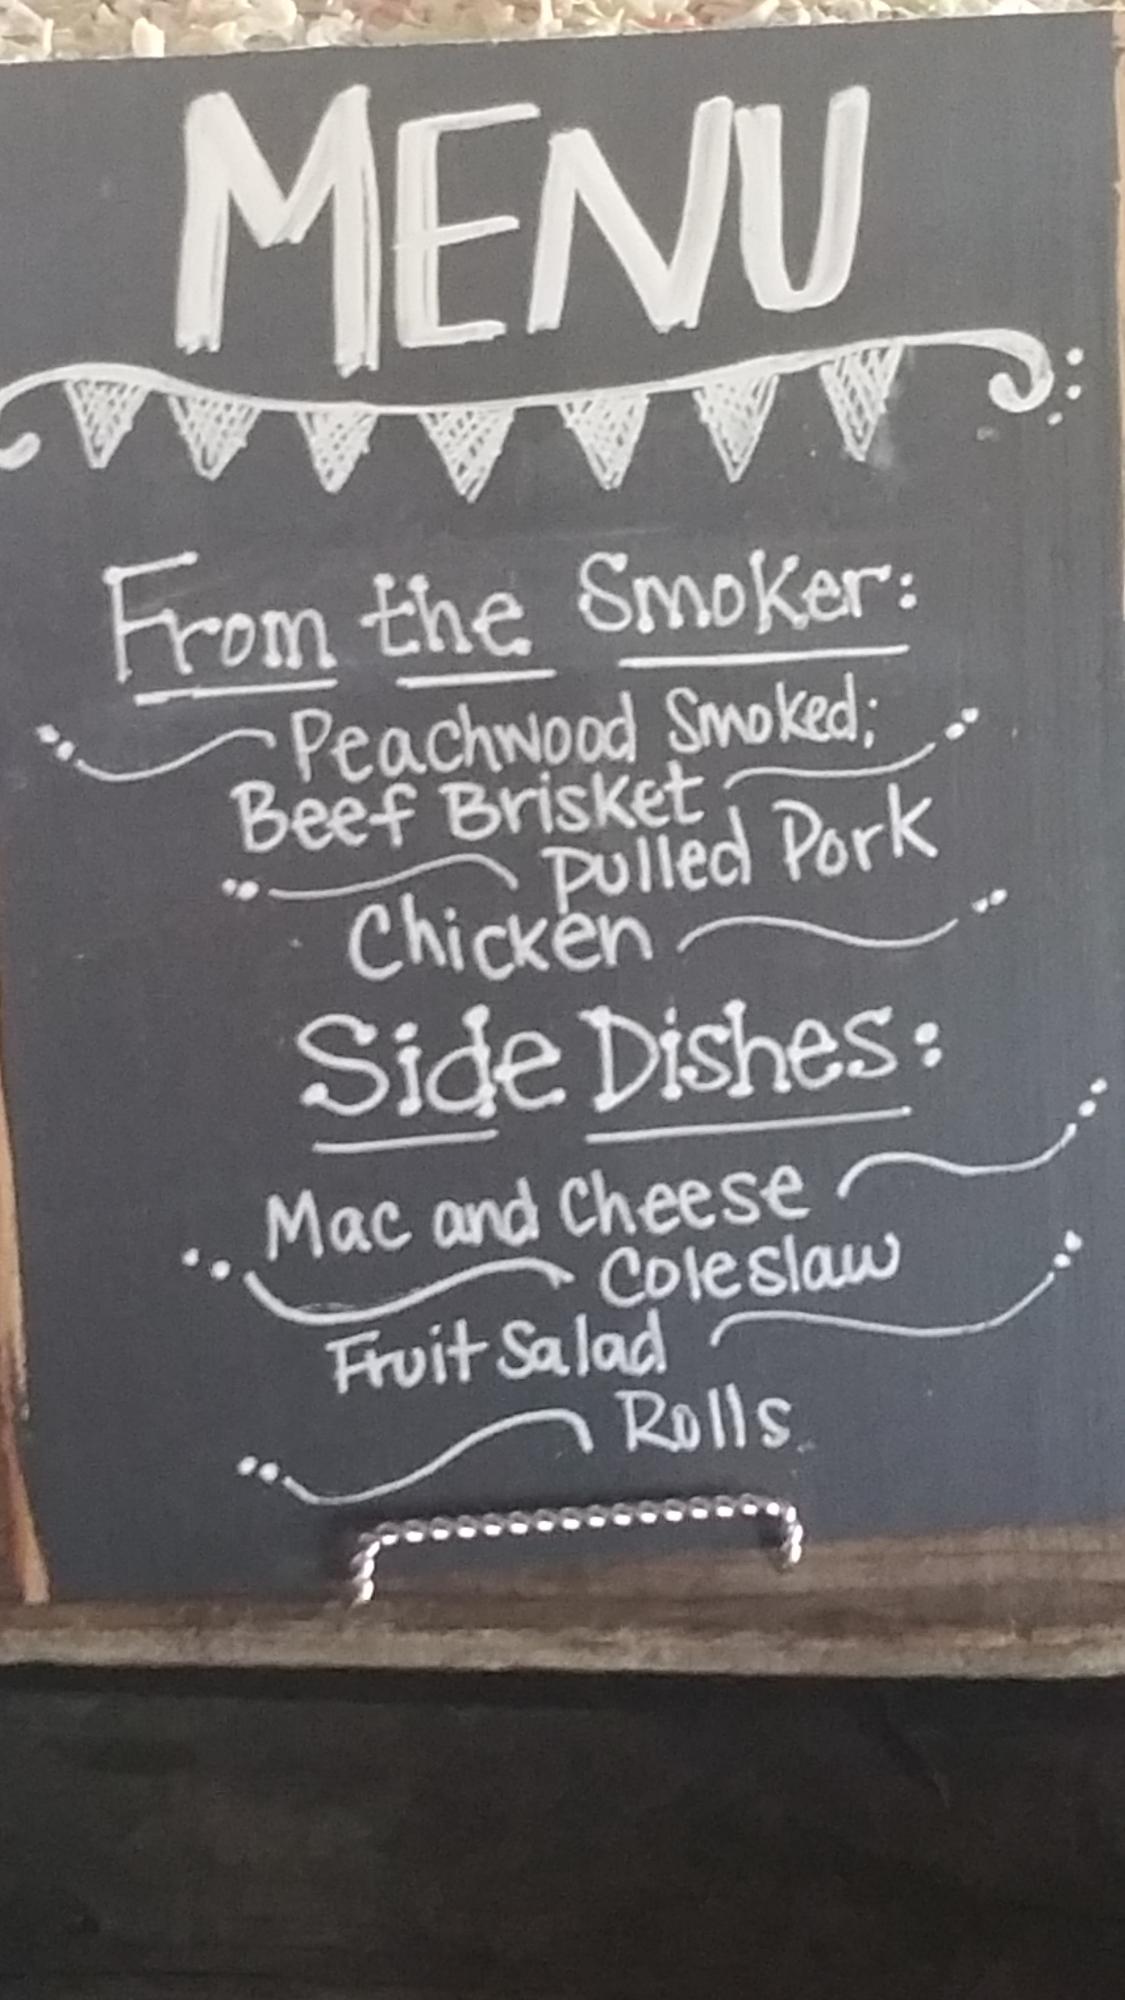 MENU
From the Smoker:
Peachwood Smoked;
Beef Brisket
Pulled Pork
Chicken
Side Dishes:
Mac and Cheese
Coleslaw
Fruit Salad
Rolls